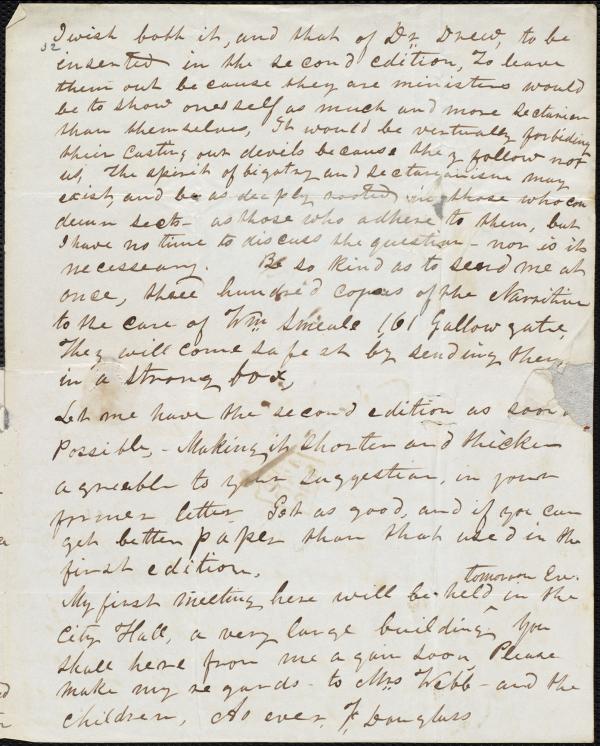 I wish both it, and that of Dr. Drew, to be
52
inserted in the second edition, To leave
them out because they are ministers would
be to show oneself as much and more sectarian
than themselves, It would be vertually forbiding
their Casting out devils because they follow not
us, The spirit of bigotry and sectarianism may
exist, and be as deeply rooted in those who con
demn sects - as those who adhere to them, but
I have no time to discuss the question - nor is it
necessary. Be so kind as to send me at
once, three hundred copies of the Narritive
to the care of Wm Smeale 161 Gallowgate,
They will come safe st by sending them
in a strong box,
Let me have the second edition as soon
Possible, - Making it shorter and thicker
agreable to your suggestion, in your
former letter. Get as good, and if you can
get better paper than that used in the
first edition.
tomorrow Eve.
My first meeting here will be held in the
City Hall, a very large building, You
shall here from me again soon, Please
make my regards - to Mrs. Webb - and the
children, As ever, F. Douglass